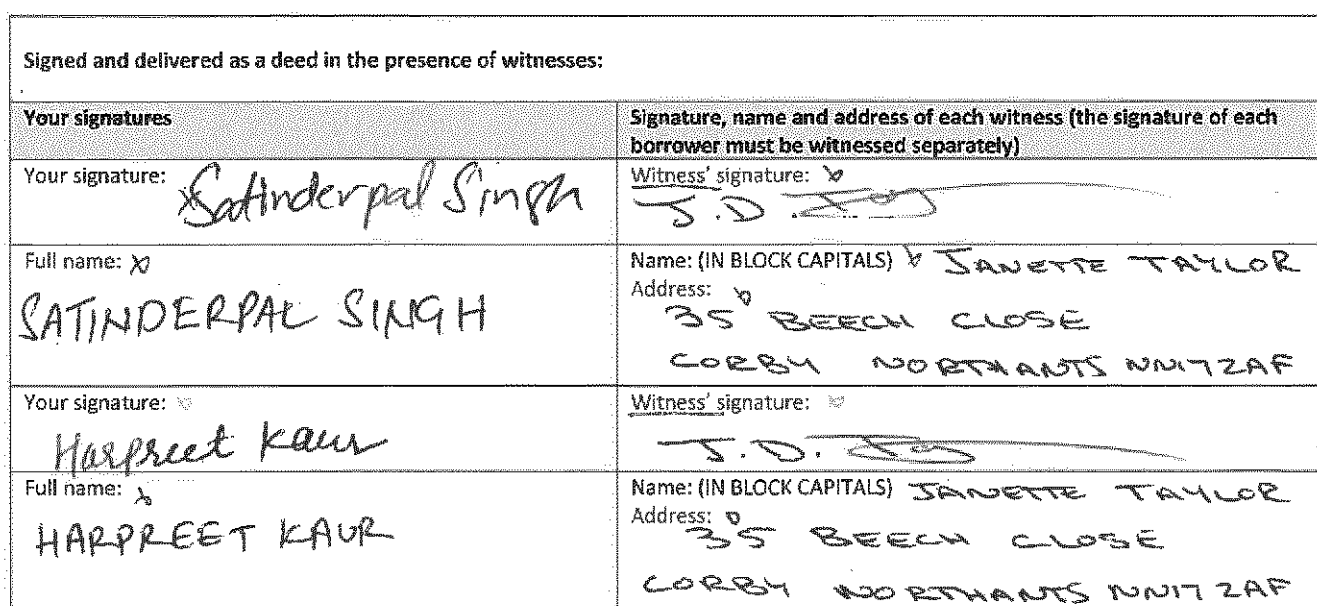 Signed and delivered as a deed in the presence of witnesses:
Your signatures
Signature, name and address of each witness (the signature of each
borrower must be witnessed separately)
Your signature: Satinderpal Singh
Witness' signature:
J.D.
Full name:
SATINDERPAL SINGH
Name: (IN BLOCK CAPITALS) JANETTE TAYLOR
Address:
35 BEECH CLOSE
CORBY NORTHANTS NN17 2AF
Your signature:
Harpreet Kaur
Witness' signature:
J.D.
Full name:
HARPREET KAUR
Name: (IN BLOCK CAPITALS) JANETTE TAYLOR
Address:
35 BEECH CLOSE
CORBY NORTHANTS NN17 2AF